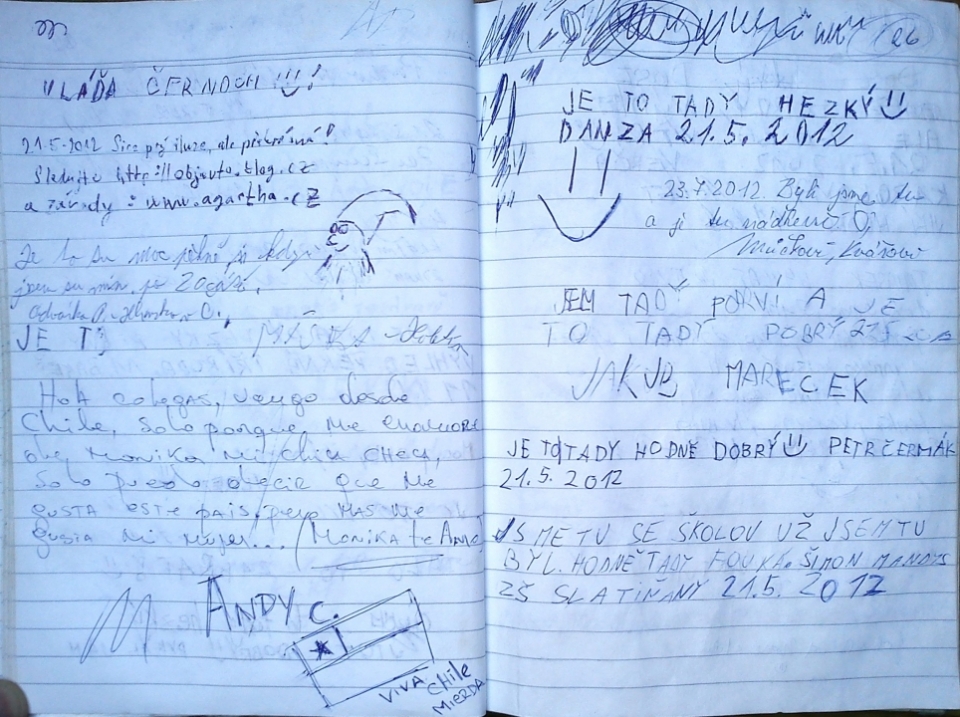 VLÁĎA ČERNOCH !!!
21.5-2012 Sice prší, ale překrásná!
Sledujte http://objevto.blog.cz
a závody: www.agartha.cz
Je to tu moc pěkné, i když
jsem tu min. po 20cáté,
JE TO
Hola colegas, vengo desde
Chile, Solo porque me enamore
de Monika mi chica checa,
Solo puedo decir que me
gusta este pais, pero MAS me
gusta mi mujer... (Monika te Amo)
ANDY C.
VIVA CHILE
MIERDA
JE TO TADY HEZKÝ
DANZA 21.5. 2012
23.7.2012. Byli jsme tu
a je tu nádherně
JSEM TADY PORVÍ A JE
TO TADY POBRÝ 21.5 2012
JAKUB MARECEK
JE TO TADY HODNĚ DOBRÝ PETR ČERMÁK
21.5. 2012
JSME TU SE ŠKOLOU UŽ JSEM TU
BYL. HODNĚ TADY FOUKÁ. ŠIMON MANDYS
ZŠ SLATIŇANY 21.5. 2012